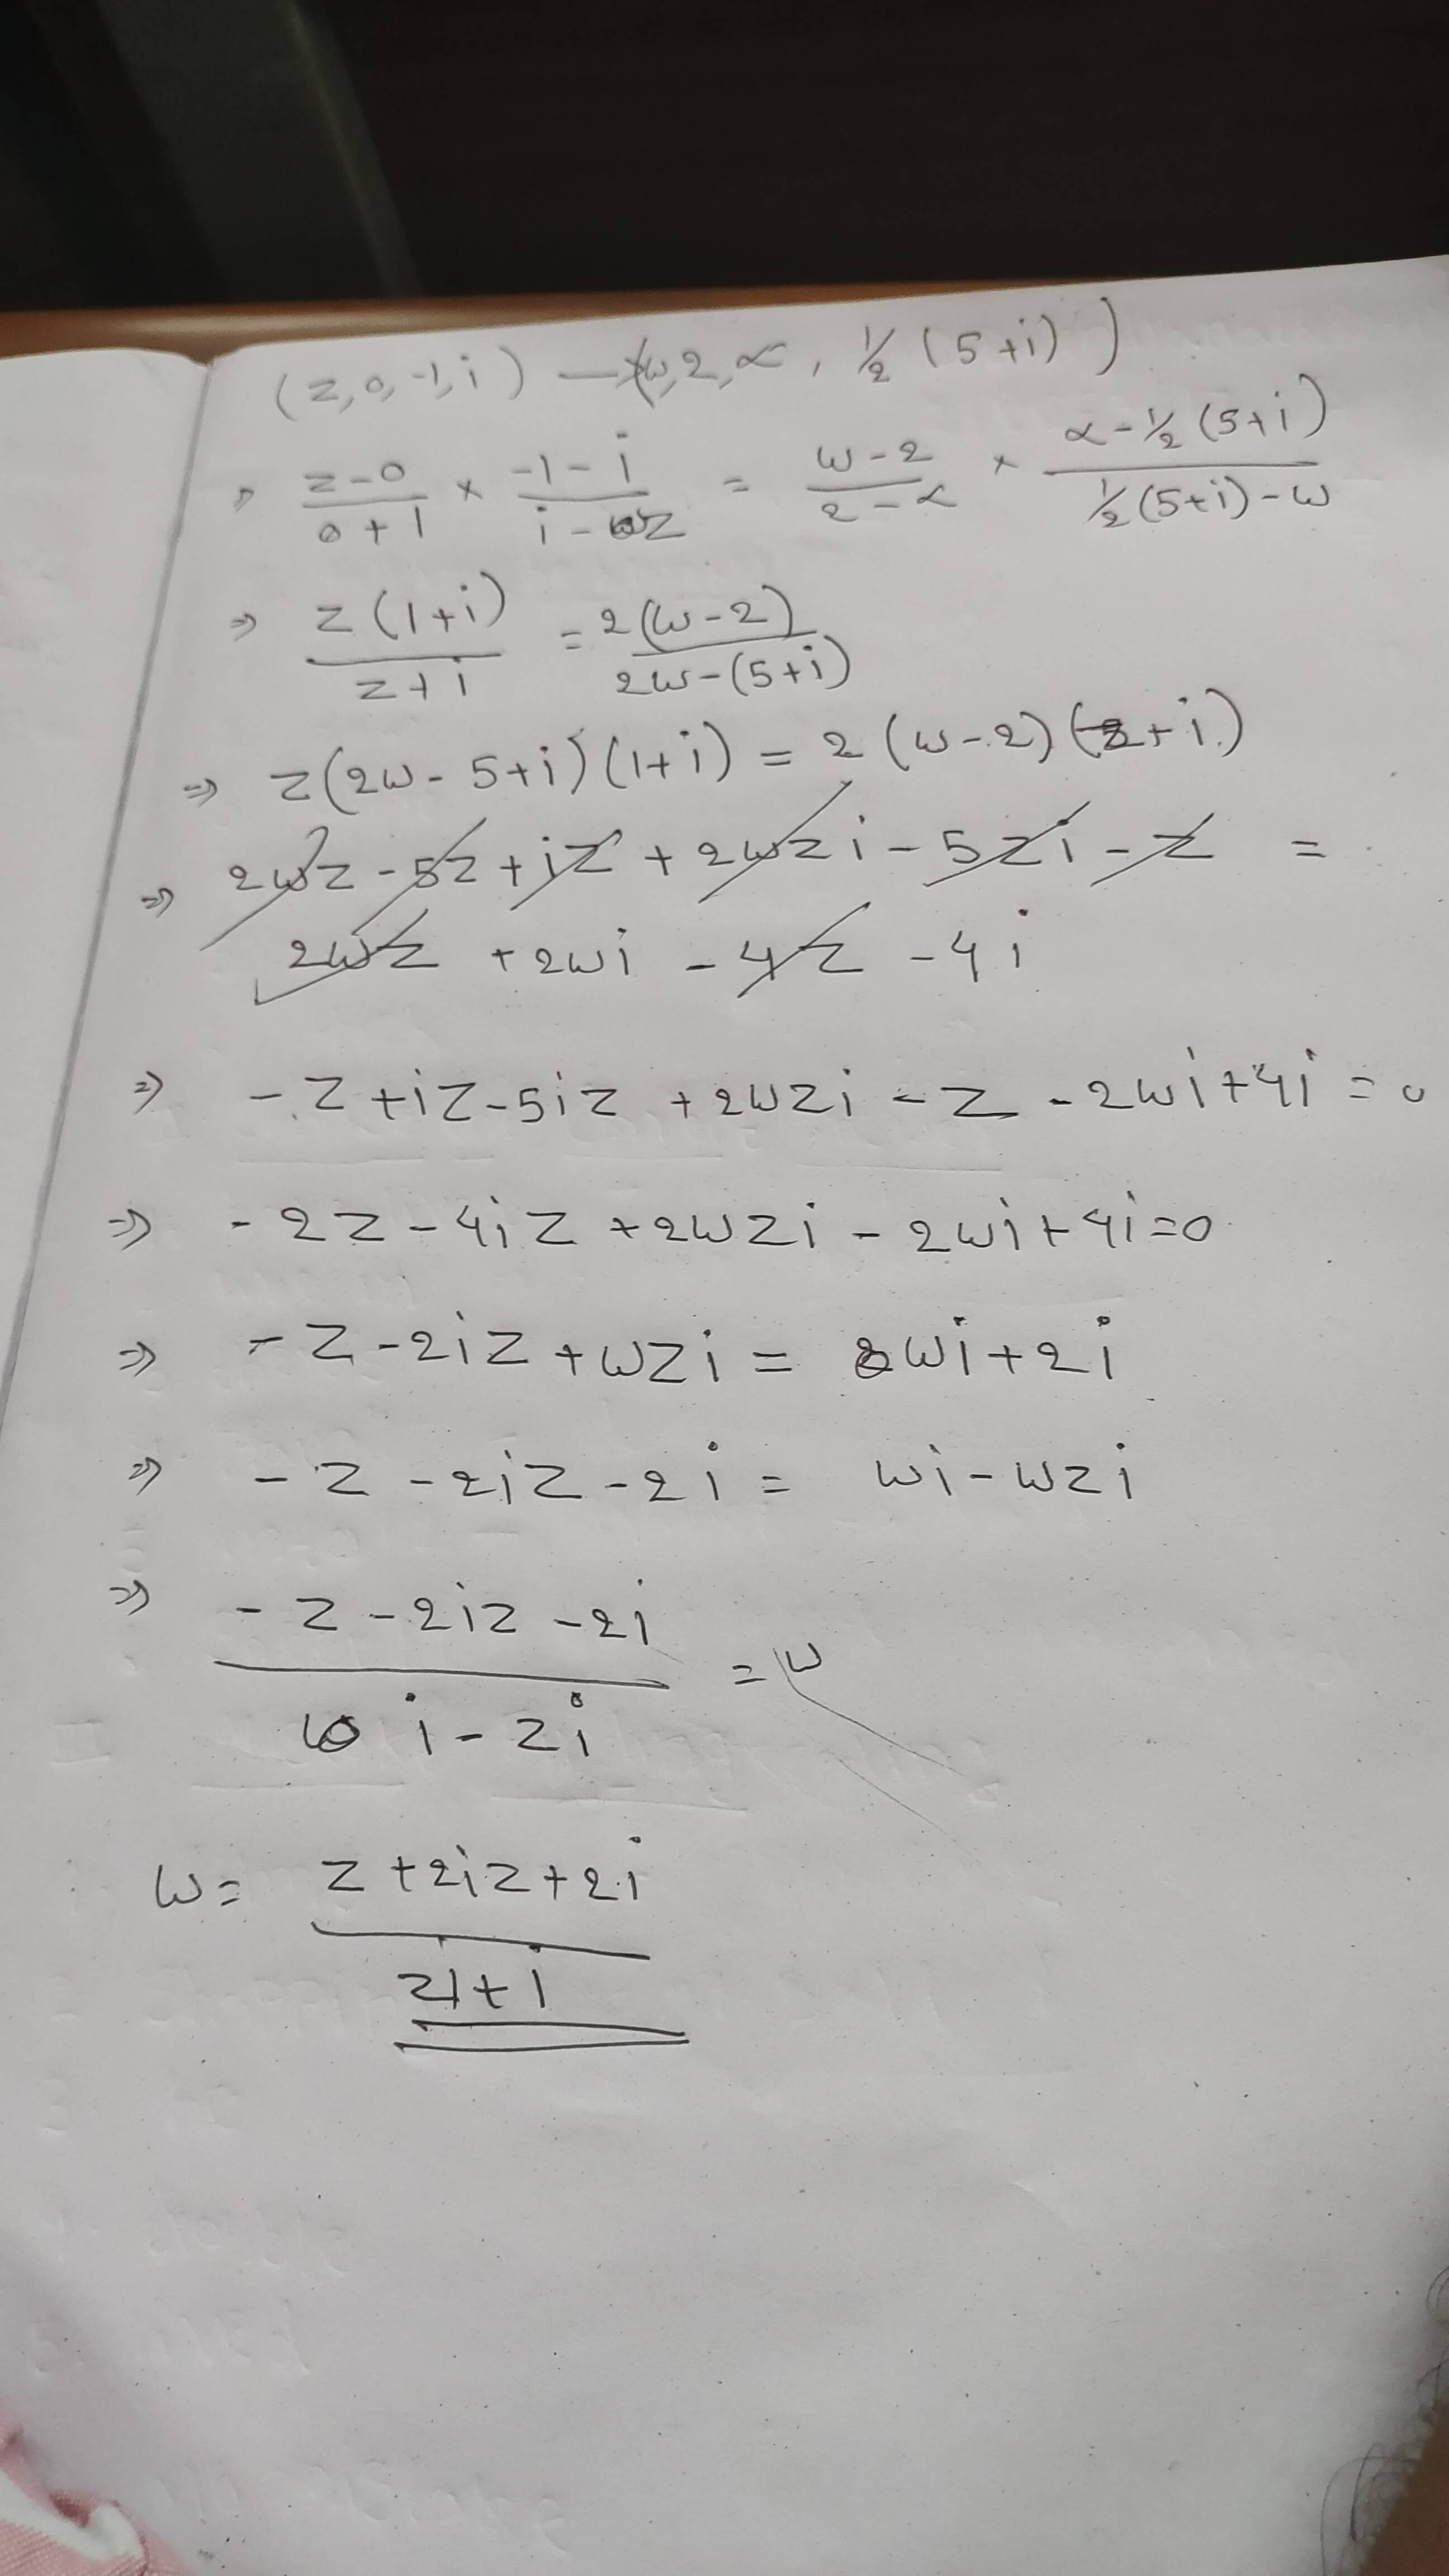 (z, 0, -1, i) → (w, 2, ∝, ½ (5+i))
⇒ z-0/0+1 × -1-i/i-z = w-2/2-∝ × ∝-½(5+i)/½(5+i)-w
⇒ z(1+i)/z+i = 2(w-2)/2w-(5+i)
⇒ z(2w-5+i)(1+i) = 2(w-2)(z+i)
⇒ 2wz-5z+iz+2wzi-5zi-z =
2wz+2wi-4z-4i
⇒ -z+iz-5iz+2wzi-z-2wi+4i=0
⇒ -2z-4iz+2wzi-2wi+4i=0
⇒ -z-2iz+wzi = wi+2i
⇒ -z-2iz-2i = wi-wzi
⇒ -z-2iz-2i/i-zi = w
w= z+2iz+2i/zi+i